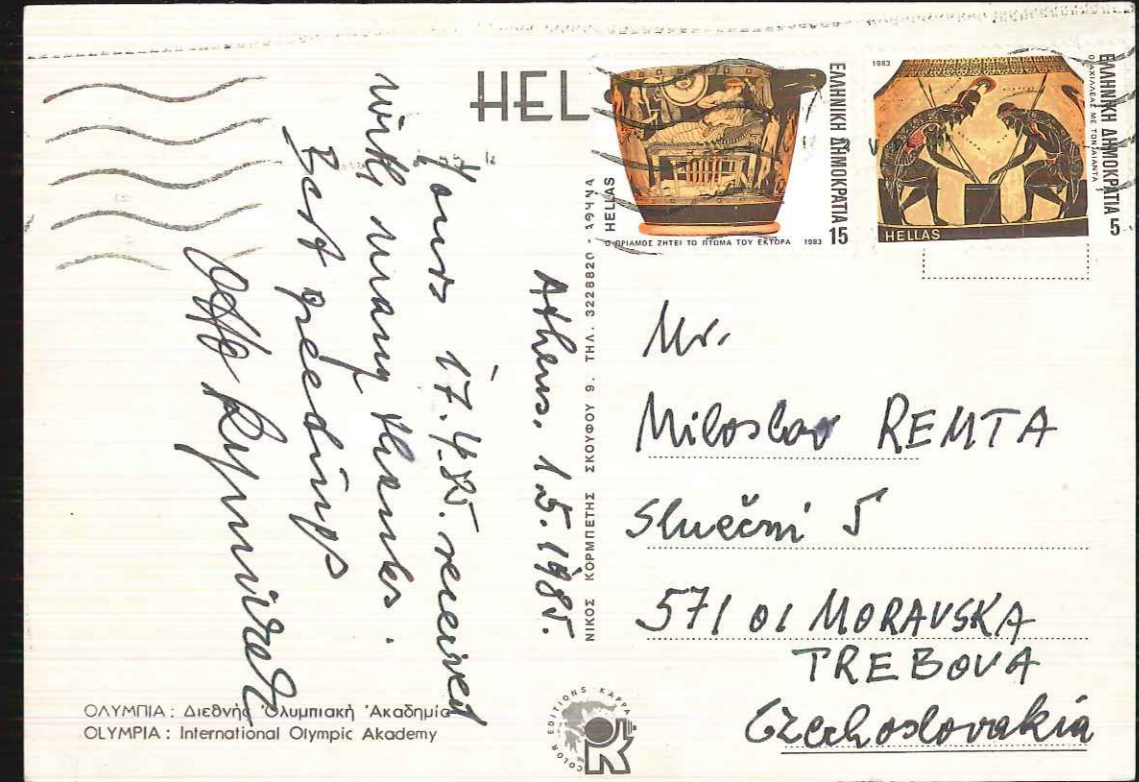 HEL
ΕΛΛΗΝΙΚΗ ΔΗΜΟΚΡΑΤΙΑ 15
HELLAS
Ο ΠΡΙΑΜΟΣ ΖΗΤΕΙ ΤΟ ΠΤΩΜΑ ΤΟΥ ΕΚΤΟΡΑ 1983
1983
ΕΛΛΗΝΙΚΗ ΔΗΜΟΚΡΑΤΙΑ 5
Ο ΑΧΙΛΛΕΑΣ ΜΕ ΤΟΝ ΑΙΑΝΤΑ
HELLAS
Athens, 1.5.1985.
Yours 17.4.85. received
with many thanks.
Best greetings
Otto
ΝΙΚΟΣ ΚΟΡΜΠΕΤΗΣ ΣΚΟΥΦΟΥ 9. ΤΗΛ. 3228820 - ΑΘΗΝΑ
Mr.
Miloslav REMTA
Slueční 5
571 01 MORAVSKA
TREBOVA
Czechoslovakia
ΟΛΥΜΠΙΑ : Διεθνής Ὀλυμπιακή Ἀκαδημία
OLYMPIA : International Olympic Akademy
COLOR EDITIONS KAPPA
OK